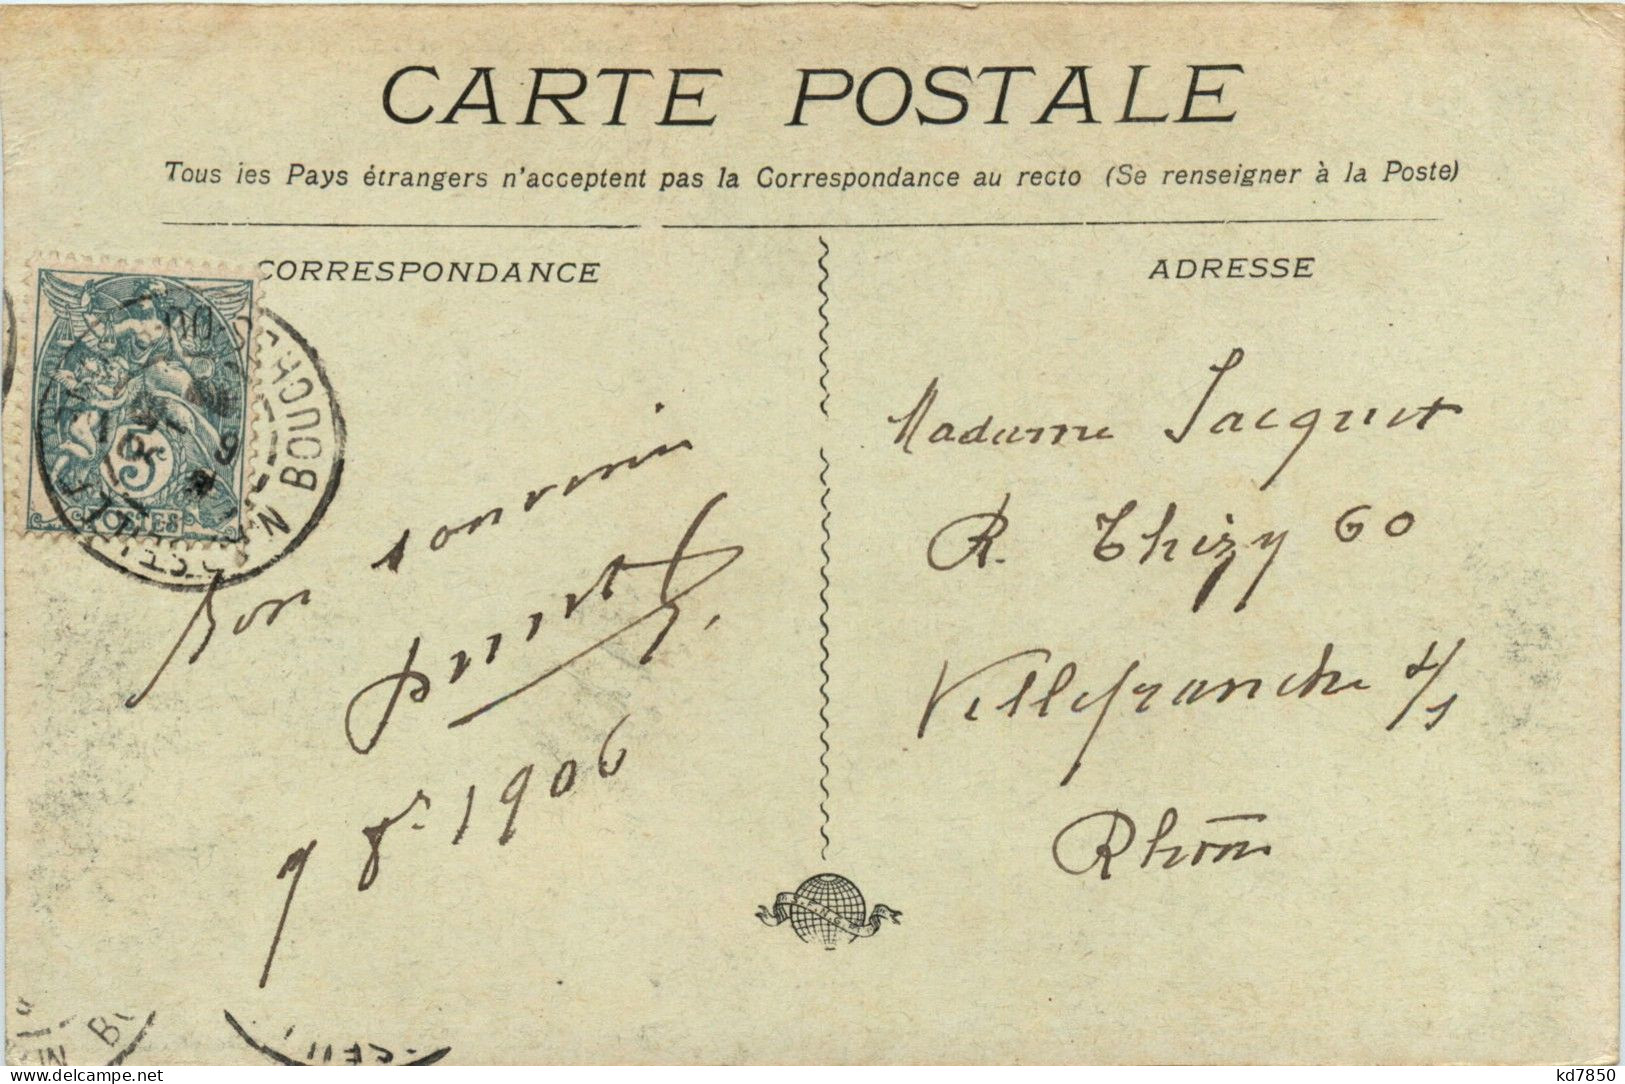 CARTE POSTALE
Tous les Pays étrangers n'acceptent pas la Correspondance au recto (Se renseigner à la Poste)
CORRESPONDANCE
ADRESSE
5c
POSTES
BOUCH DU
Bon souvenir
9 8bre 1906
Madame Jacquet
R. Thizy 60
Villefranche s/s
Rhône
kd7850